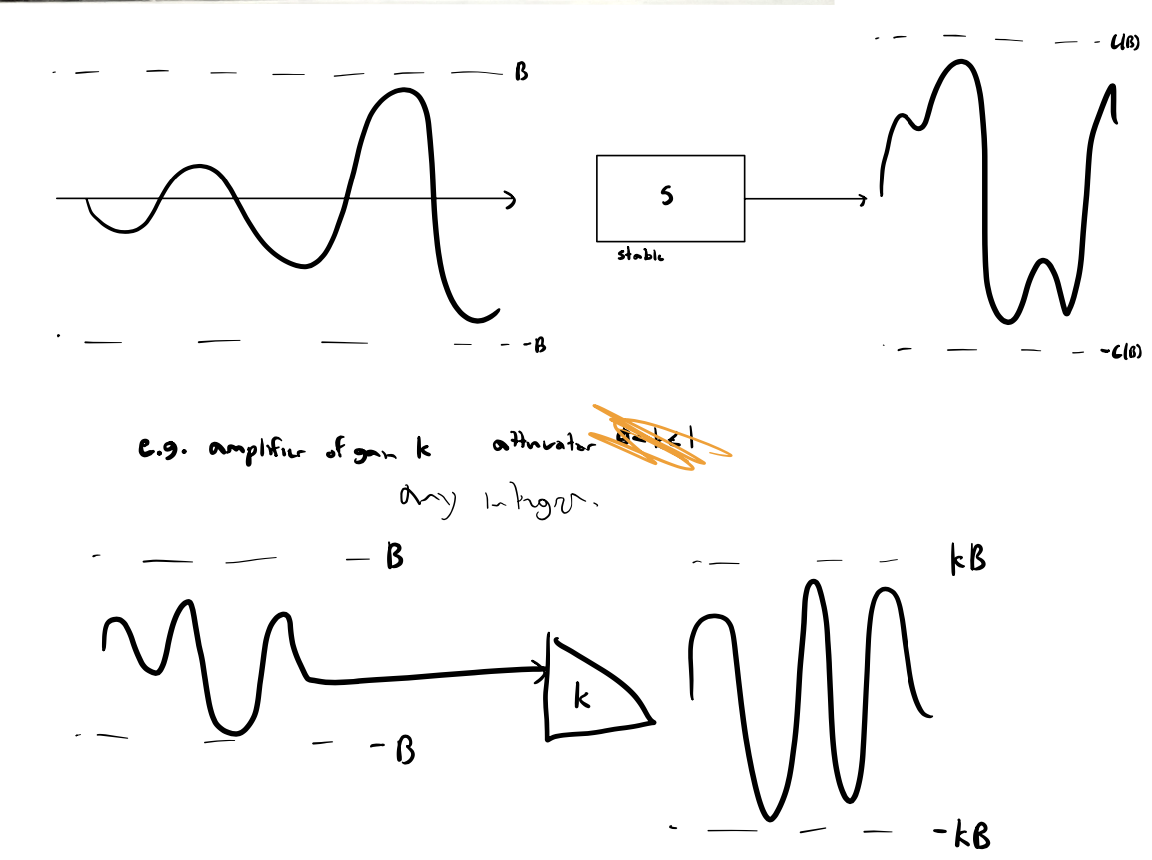 B
C(B)
S
stable
-B
-C(B)
e.g. amplifier of gain k attenuator
any integer.
B
kB
k
-B
-kB